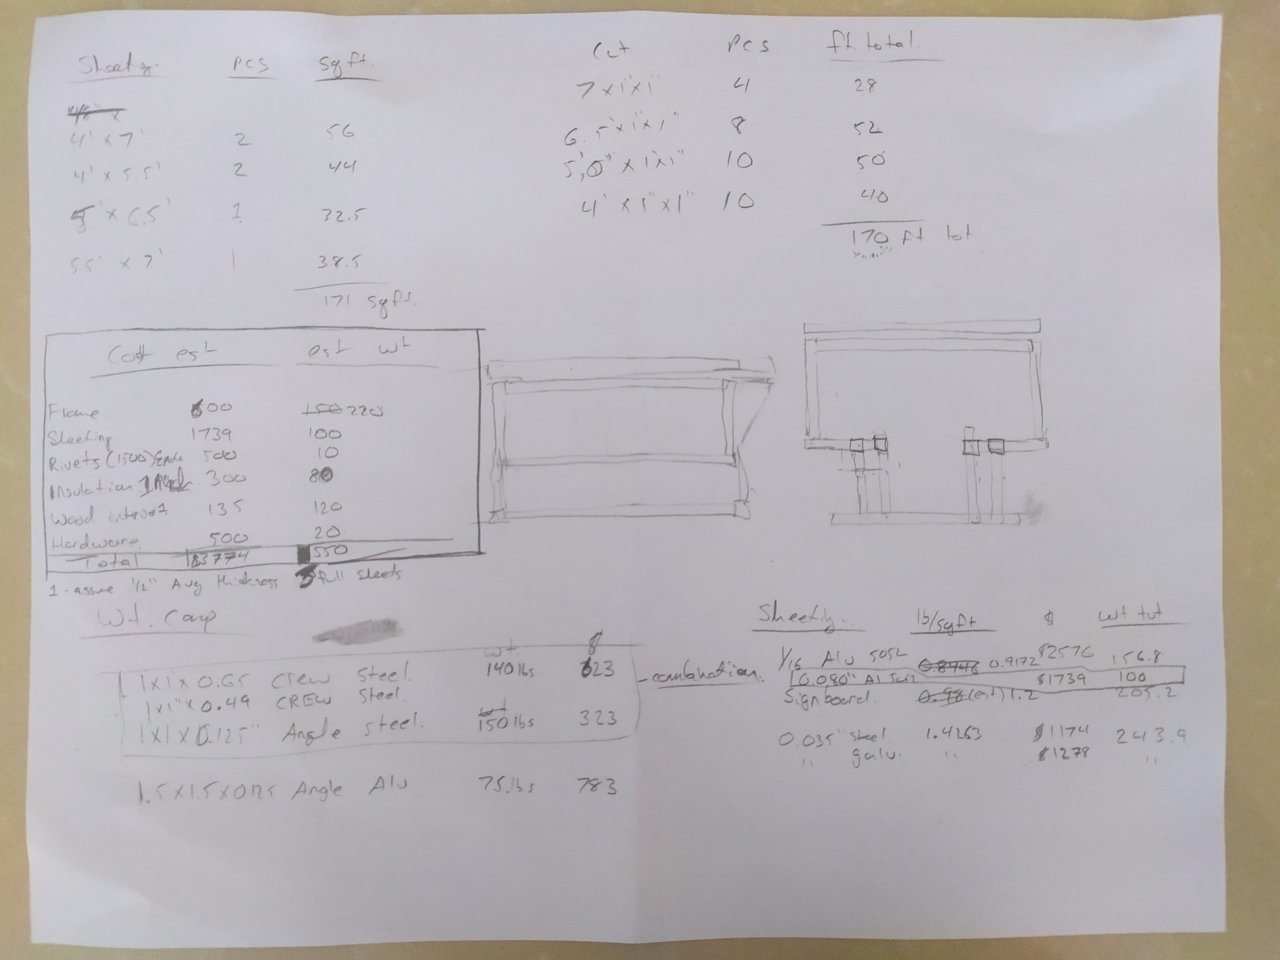 Sheeting. PCS Sq ft.
4' x 7' 2 56
4' x 5.5' 2 44
5' x 6.5' 1 32.5
5.5' x 7' 1 38.5
171 sq ft.
Cut PCS ft. total.
7' x 1" x 1" 4 28
6.5' x 1" x 1" 8 52
5',0" x 1" x 1" 10 50
4' x 1" x 1" 10 40
170 ft tot
Cost est est wt
Frame 600 150 220
Sheeting 1739 100
Rivets (1500) 500 10
Insulation 300 80
Wood interior 1 135 120
Hardware 500 20
Total $3774 550
1 - assume 1/2" Avg thickness 3 full sheets
Wt. Comp
wt. $
1x1x0.65 Crew Steel. 140 lbs 623
1x1" x 0.49 CREW Steel.
wt
1x1x0.125" Angle steel. 150 lbs 323
combination.
1.5x1.5x0.125 Angle Alu 75.lbs 783
Sheeting.. lb/sqft $ wt tot
1/16 Alu 5052 0.9172 $2576 156.8
0.040" Al 5052 $1739 100
Signboard 0.98 (est) 1.2 205.2
0.035" steel. 1.4263 $1174 243.9
" galv. " $1278 "